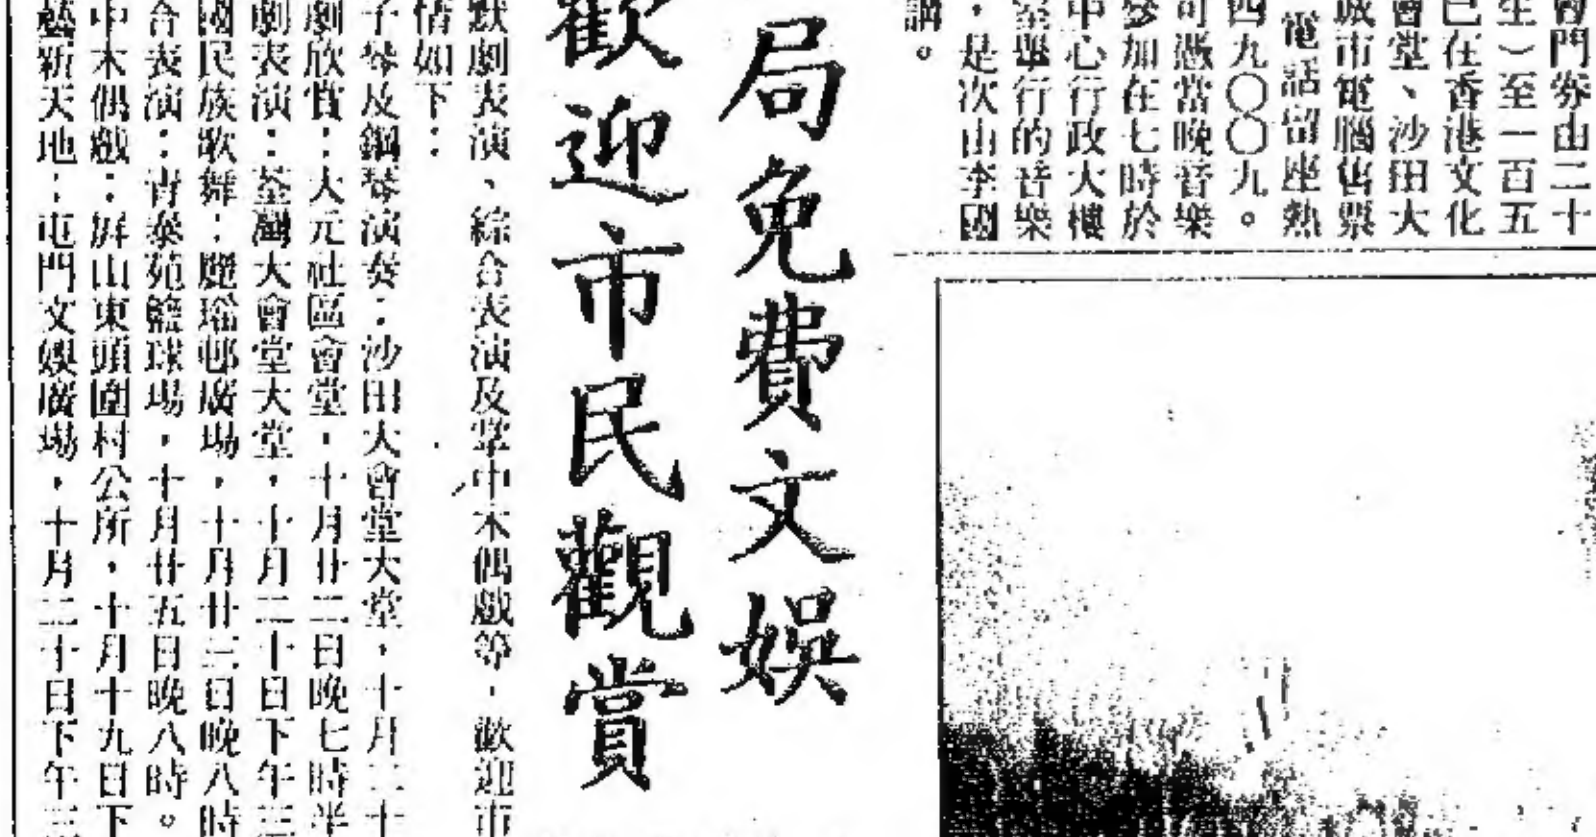 會門券由二十
生）至一百五
已在香港文化
會堂、沙田大
城市電腦售票
電話留座熱
四九〇〇九。
可憑當晚音樂
參加在七時於
中心行政大樓
室舉行的音樂
，是次由李國
講。
局免費文娛
歡迎市民觀賞
默劇表演、綜合表演及掌中木偶戲等，歡迎市
情如下：
子琴及鋼琴演奏：沙田大會堂大堂，十月二十
劇欣賞：大元社區會堂，十月廿二日晚七時半
劇表演：荃灣大會堂大堂，十月二十日下午三
國民族歌舞：麗瑤邨廣場，十月廿三日晚八時
合表演：青泰苑籃球場，十月廿五日晚八時。
中木偶戲：屏山東頭圍村公所，十月十九日下
藝新天地：屯門文娛廣場，十月二十日下午三